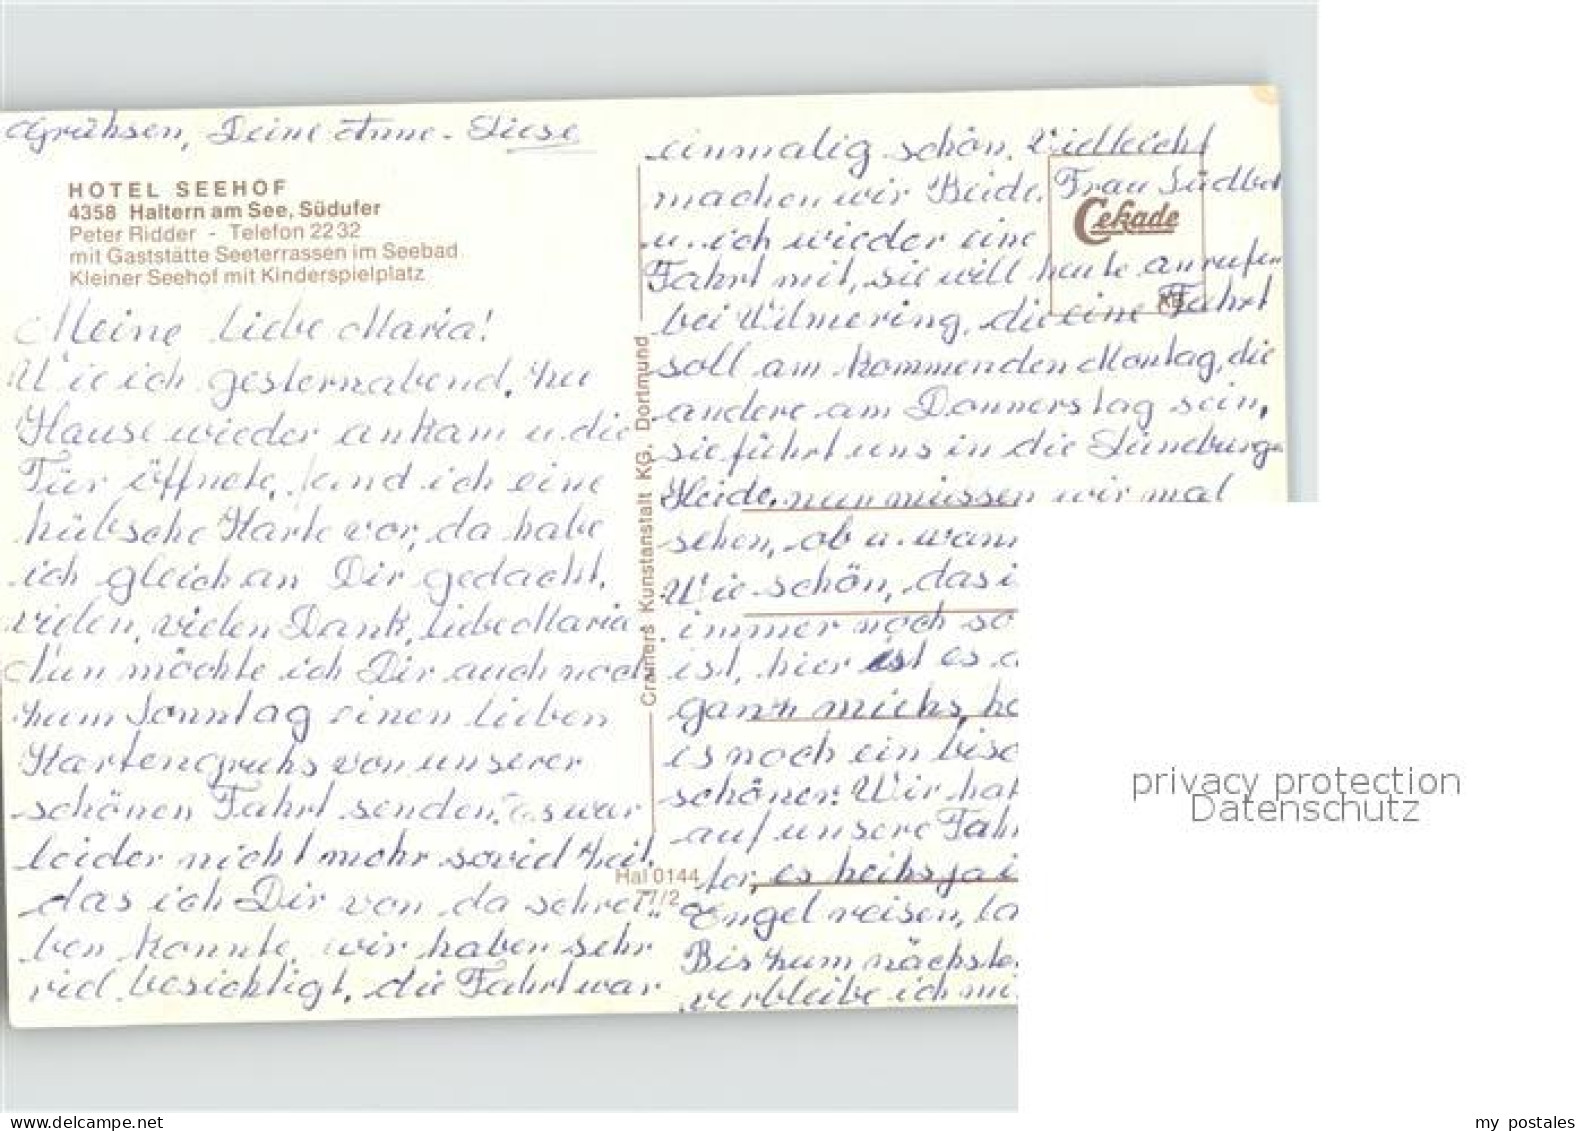 Grühsen, Deine Anne-Liese
HOTEL SEEHOF
4358 Haltern am See, Südufer
Peter Ridder - Telefon 2232
mit Gaststätte Seeterrassen im Seebad
Kleiner Seehof mit Kinderspielplatz
Meine liebe Maria!
Wie ich gesternabend, zu
Hause wieder ankam u. die
Tür öffnete, fand ich eine
hübsche Karte vor, da habe
ich gleich an Dir gedacht,
vielen, vielen Dank, liebe Maria
Nun möchte ich Dir auch noch
zum Sonntag einen lieben
Kartengruhs von unserer
schönen Fahrt senden, es war
leider nicht mehr soviel Zeit,
das ich Dir von da schrei..
ben konnte, wir haben sehr
viel besichtigt, die Fahrt war
einmalig schön. Vielleicht
machen wir Beide, Frau
u. ich wieder eine
Fahrt mit, sie will heute anrufen
bei Wilmering, die eine Fahrt
soll am kommenden Montag, die
andere am Donnerstag sein,
sie führt uns in die Lüneburge
Heide, nun müssen wir mal
sehen, ob u. wann
Wie schön, das i
immer noch so
ist, hier ist es
ganz nichs,
is noch ein bisc
schöner. Wir hat
auf unsere Fah
ter, es heihs ja
Engel reisen, la
Bis zum nächste
verbleibe ich mi
Cekade
KB
Cramers Kunstanstalt KG. Dortmund
Hal 0144
77/2
privacy protection
Datenschutz
my postales